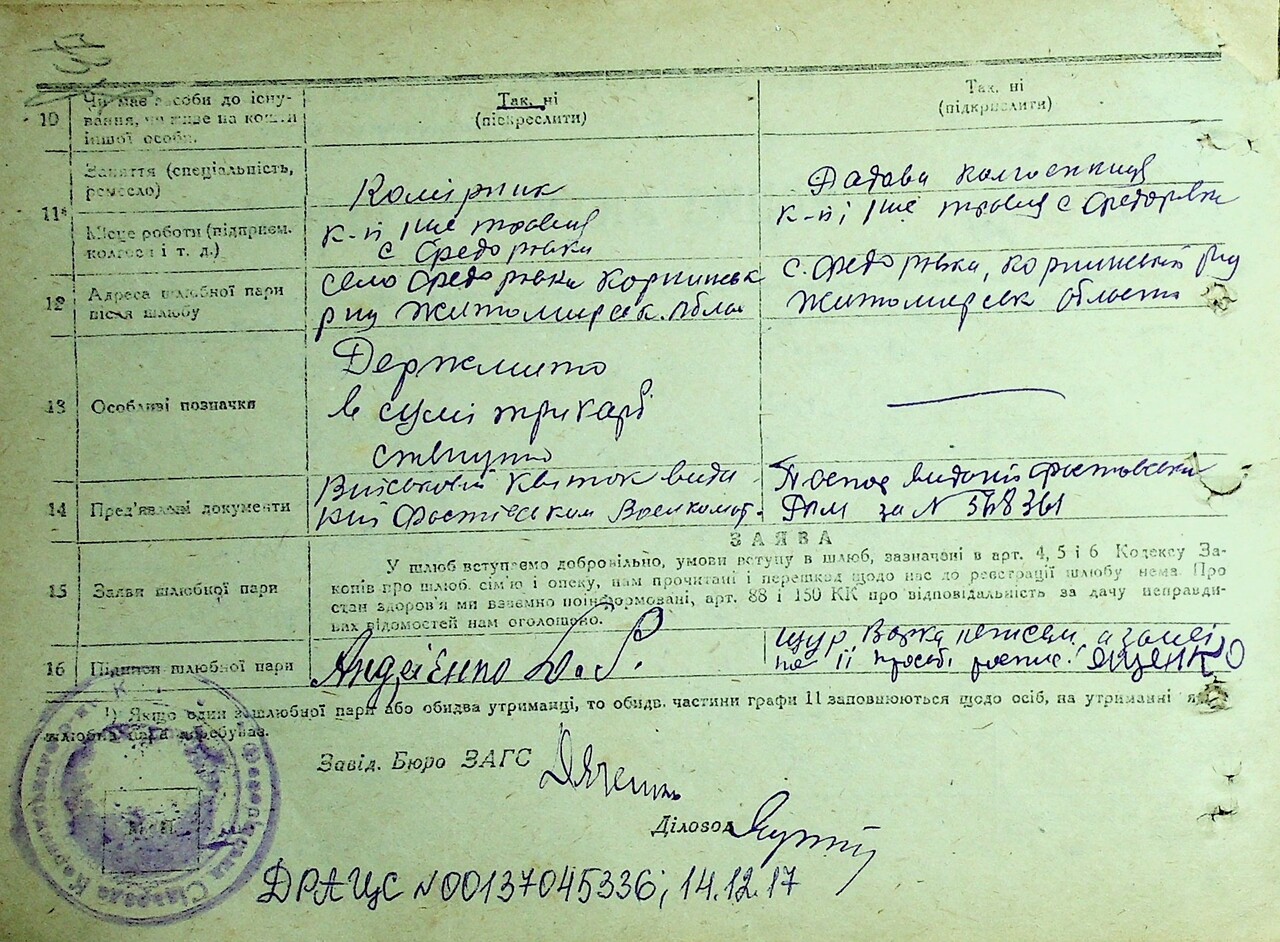 10
Чи має засоби до існу-
вання, чи живе на кошти
іншої особи.
Так, ні
(підкреслити)
Так. ні
(підкрислити)
11*
Заняття (спеціальність,
ремесло)
Комірник
колгоспниця
Місце роботи (підприєм.
колгосп і т. д.)
к-п і 1ше травня
с Федорівка
к-п і 1ше травня с Федорівка
12
Адреса шлюбної пари
після шлюбу
село Федорівка Корнинськ
р-ну Житомирськ. облас
с. Федорівка, Корнинський р-ну
Житомирськ області
13
Особливі позначки
Держмито
в сумі три карб
стягнуто
14
Пред'явлені документи
Військовий квиток вида
ний Фастівським Воєнкомат.
Паспорт виданий Фастовським
за № 568361
ЗАЯВА
15
Заяви шлюбної пари
У шлюб вступаємо добровільно, умови вступу в шлюб, зазначені в арт. 4, 5 і 6 Кодексу За-
конів про шлюб, сім'ю і опеку, нам прочитані і перешкод щодо нас до реєстрації шлюбу нема. Про
стан здоров'я ми взаємно поінформовані, арт. 88 і 150 КК про відповідальність за дачу неправди-
вих відомостей нам оголошено.
16
Підписи шлюбної пари
Андрієнко
Щур Варка неписем, а замі
на її прозбі роспис. Яценко
¹) Якщо один з шлюбної пари або обидва утриманці, то обидв. частини графи 11 заповнюються щодо осіб, на утриманні як
шлюбна пара перебуває.
Завід. Бюро ЗАГС
Діловод
М. П.
ДРАЦС №00137045336; 14.12.17